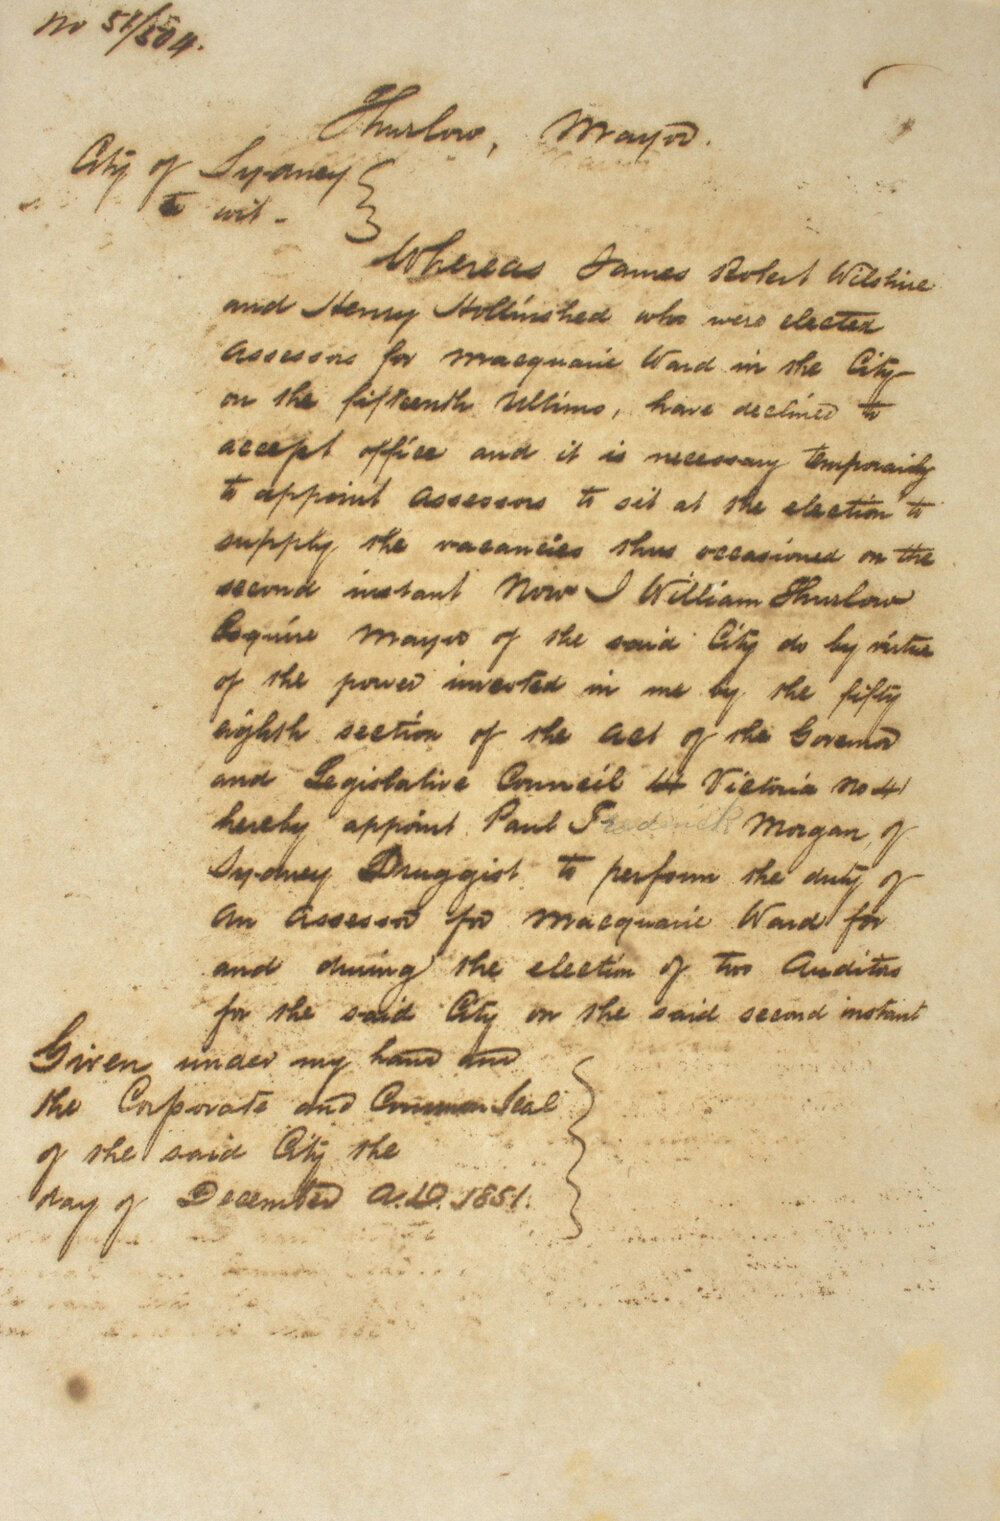 No 51/504.
Thurlow, Mayor.
City of Sydney
to wit -
Whereas James Robert Wilshire
and Henry Hollinshed who were elected
Assessors for Macquarie Ward in the City
on the fifteenth Ultimo, have declined to
accept office and it is necessary temporarily
to appoint Assessors to sit at the election to
supply the vacancies thus occasioned on the
second instant Now I William Thurlow
Esquire Mayor of the said City do by virtue
of the power invested in me by the fifty
eighth section of the Act of the Governor
and Legislative Council Victoria No 41
hereby appoint Paul Frederick Morgan, of
Sydney Druggist to perform the duty of
an Assessor for Macquarie Ward for
and during the election of two Auditors
for the said City on the said second instant
Given under my hand and
the Corporate and Common Seal
of the said City the
day of December A.D. 1851.